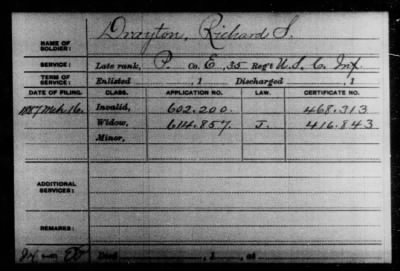 NAME OF SOLDIER: Drayton, Richard S.
SERVICE: Late rank, P. Co. E, 35 Reg't U.S.C. Inf.
TERM OF SERVICE: Enlisted , 1 Discharged , 1
DATE OF FILING. CLASS. APPLICATION NO. LAW. CERTIFICATE NO.
1887 Mch 16. Invalid, 602.200. 468.313
Widow, 614.857. J. 416.843
Minor,
ADDITIONAL SERVICES:
REMARKS:
Died , 1 , at